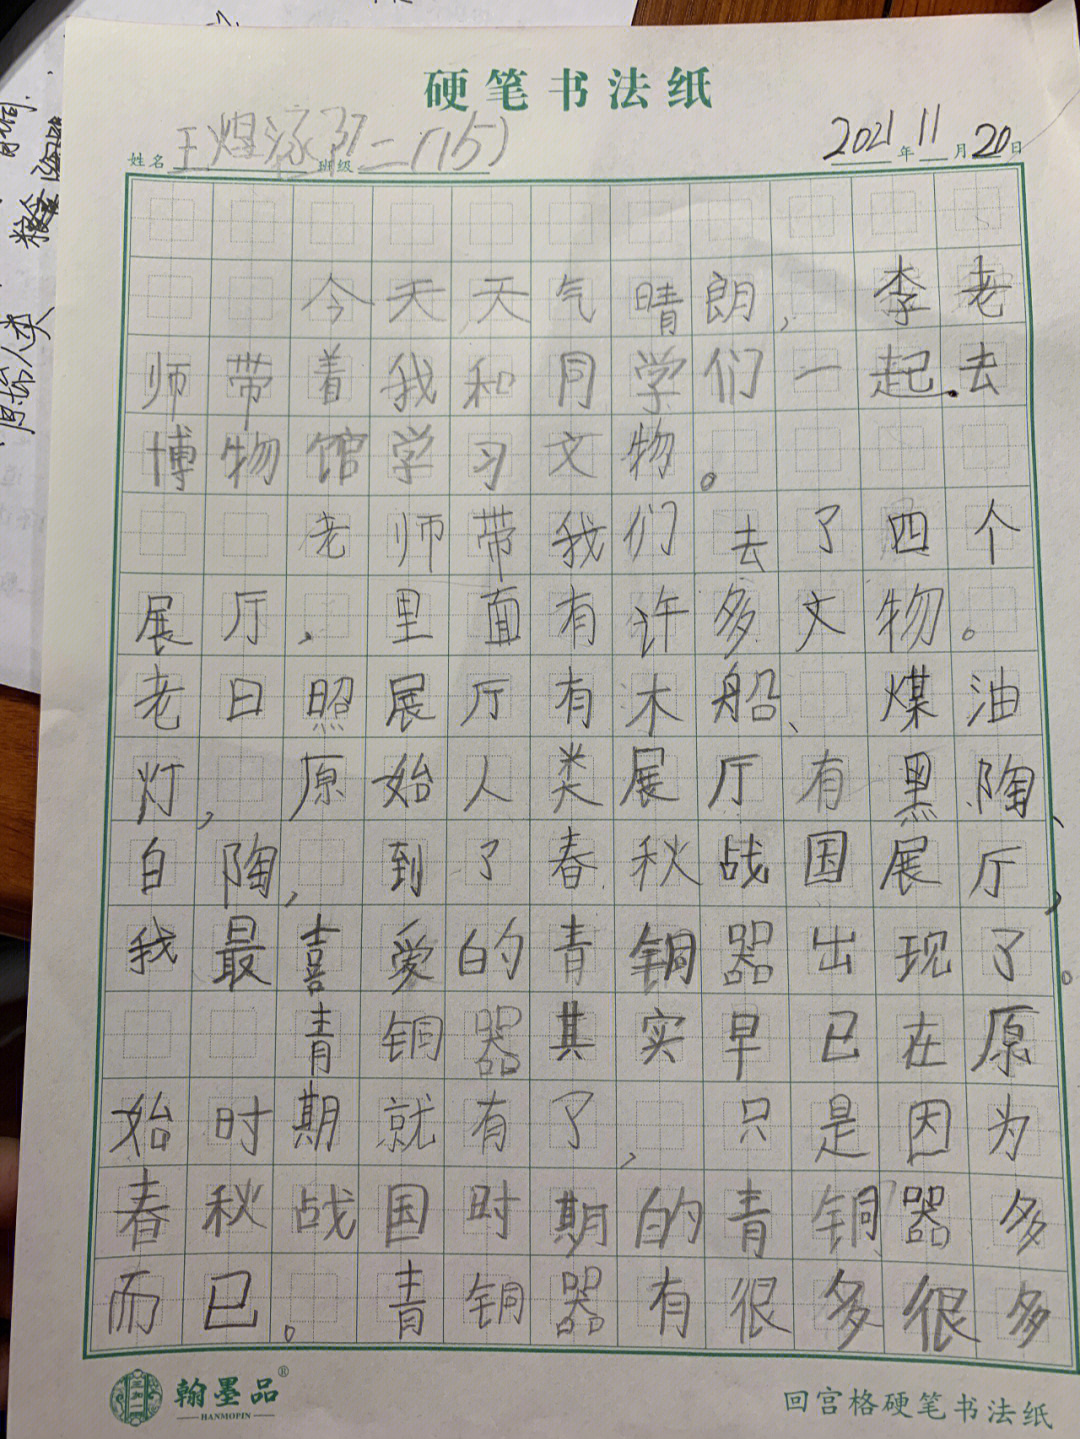 硬笔书法纸
姓名 王煜泳37 班级 二(15) 2021年11月20日
今天天气晴朗，李老
师带着我和同学们一起去
博物馆学习文物。
老师带我们去了四个
展厅，里面有许多文物。
老日照展厅有木船、煤油
灯，原始人类展厅有黑陶、
白陶，到了春秋战国展厅，
我最喜爱的青铜器出现了。
青铜器其实早已在原
始时期就有了，只是因为
春秋战国时期的青铜器多
而已。青铜器有很多很多
翰墨品®
HANMOPIN
回宫格硬笔书法纸
原始人类